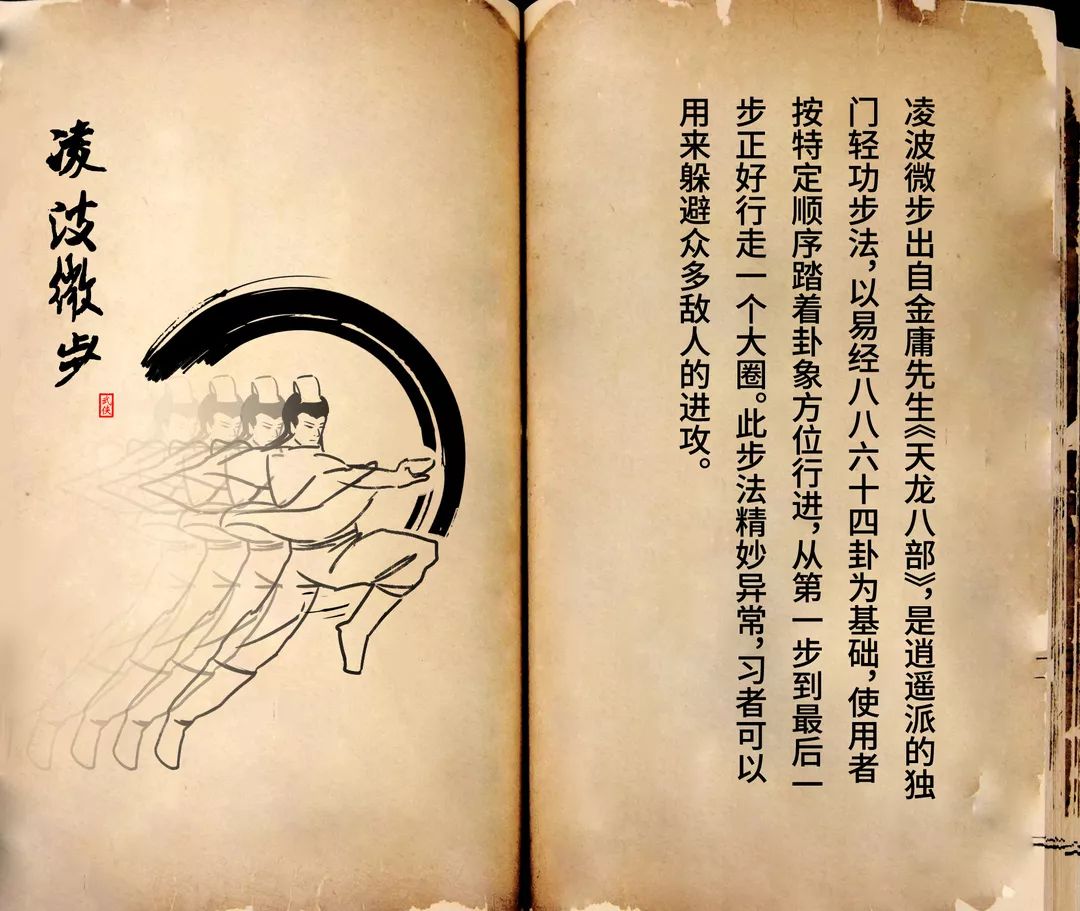 凌波微步
武侠
凌波微步出自金庸先生《天龙八部》，是逍遥派的独
门轻功步法，以易经八八六十四卦为基础，使用者
按特定顺序踏着卦象方位行进，从第一步到最后一
步正好行走一个大圈。此步法精妙异常，习者可以
用来躲避众多敌人的进攻。